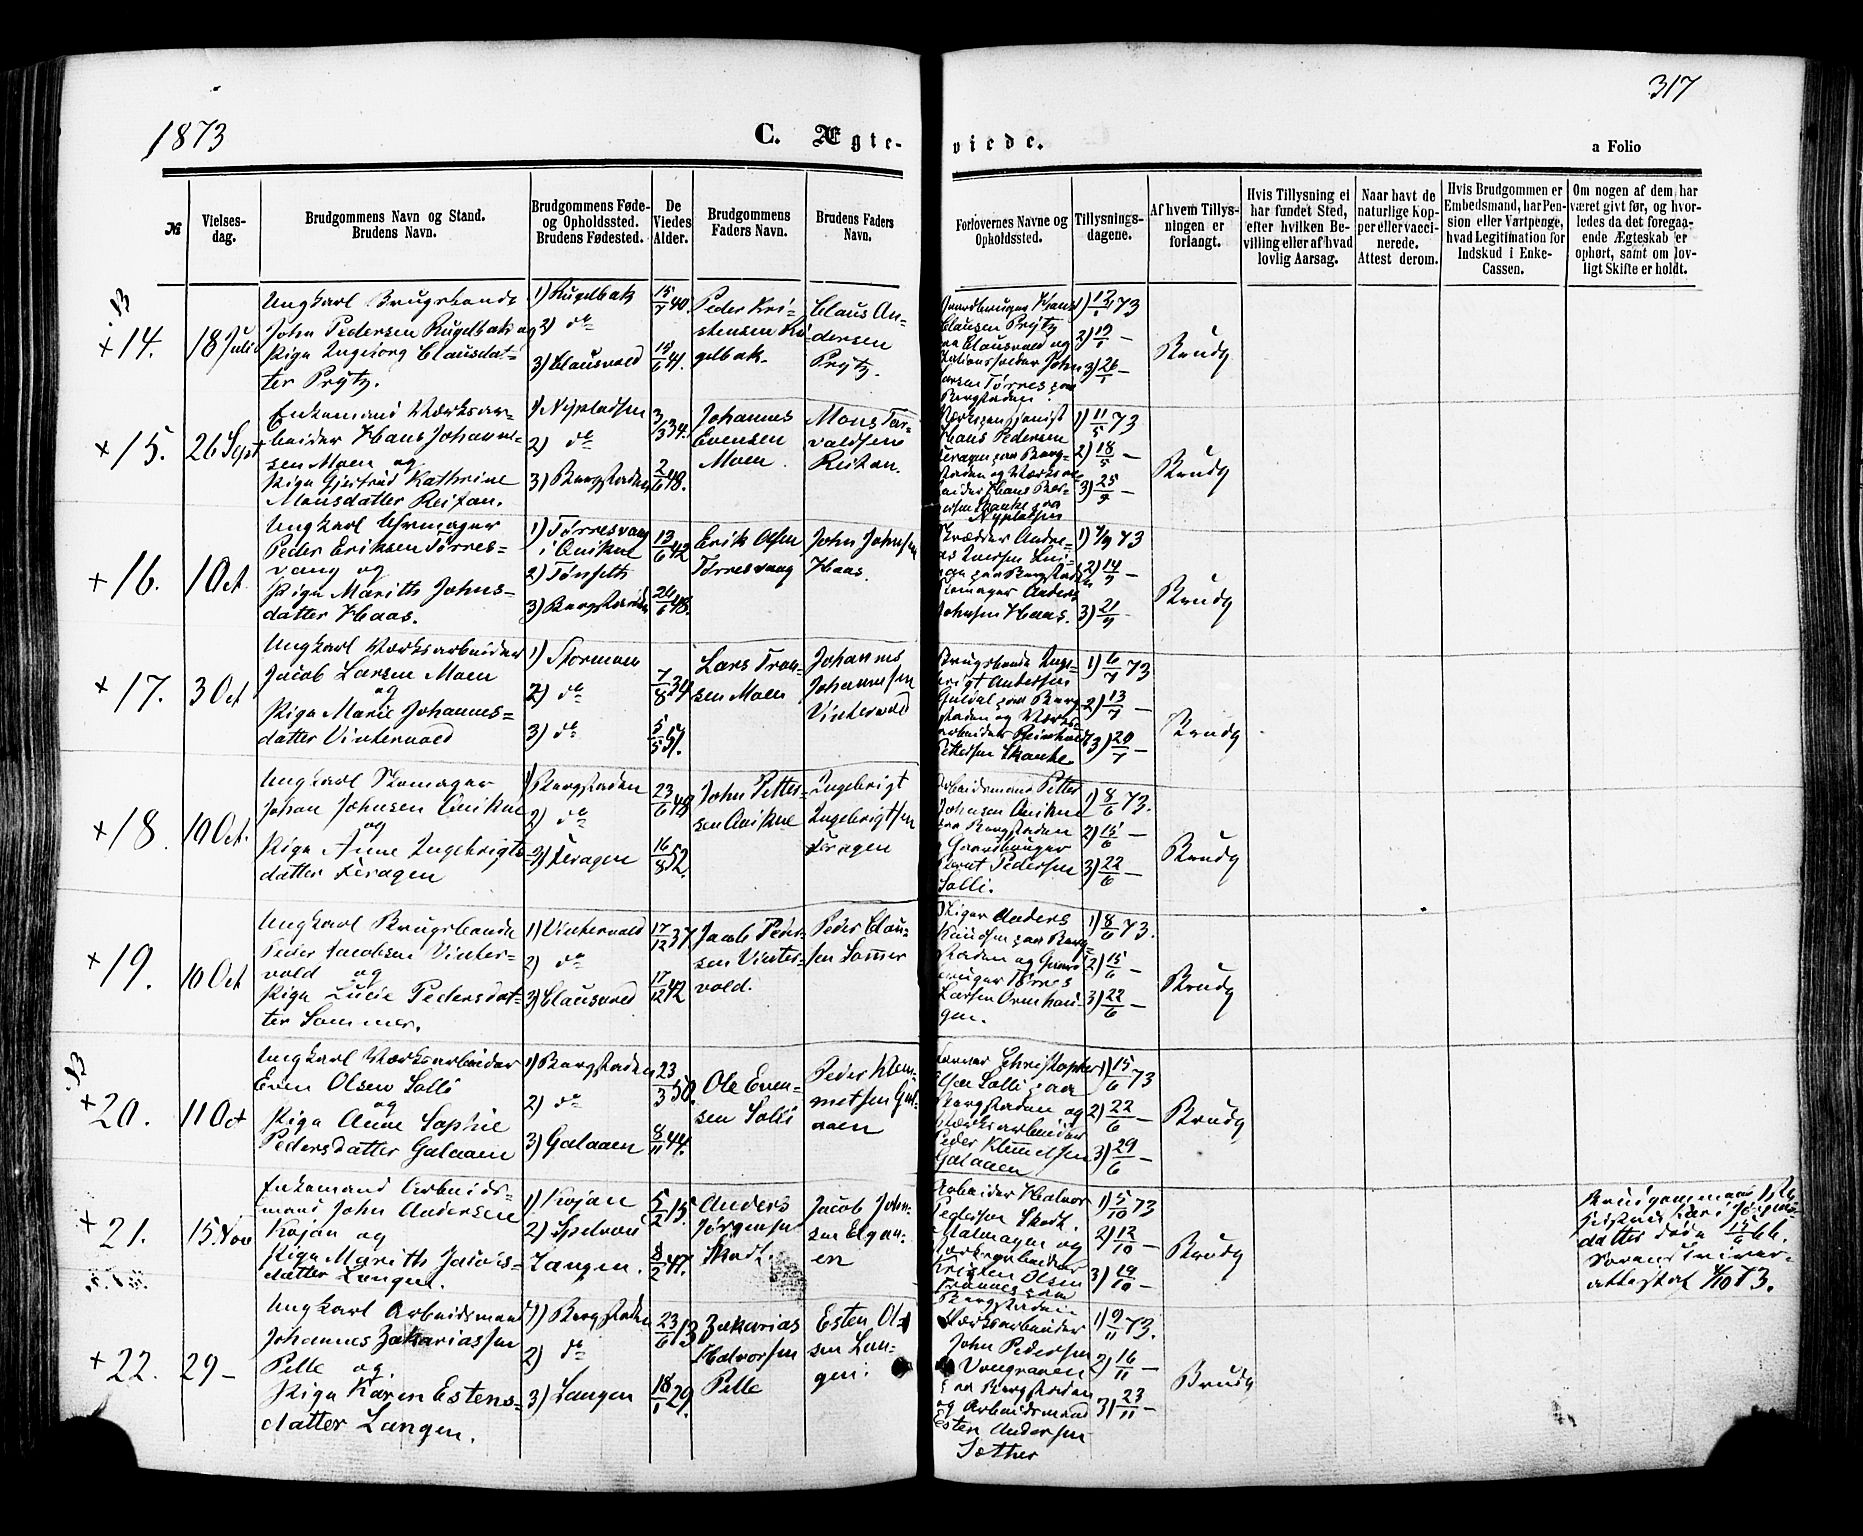 317
1873
C. Ægte-
viede.
a Folio
№
Vielses-
dag.
Brudgommens Navn og Stand.
Brudens Navn.
Brudgommens Føde-
og Opholdssted.
Brudens Fødested.
De
Viedes
Alder.
Brudgommens
Faders Navn.
Brudens Faders
Navn.
Forlovernes Navne og
Opholdssted.
Tillysnings-
dagene.
Af hvem Tillys-
ningen er
forlangt.
Hvis Tillysning ei
har fundet Sted,
efter hvilken Be-
villing eller af hvad
lovlig Aarsag.
Naar havt de
naturlige Kop-
per eller vacci-
nerede.
Attest derom.
Hvis Brudgommen er
Embedsmand, har Pen-
sion eller Vartpenge,
hvad Legitimation for
Indskud i Enke-
Cassen.
Om nogen af dem har
været givt før, og hvor-
ledes da det foregaa-
ende Ægteskab er
ophørt, samt om lov-
ligt Skifte er holdt.
+ 14.
18 Juli
Ungkarl Brugsbonde
John Pedersen Rugelbak og
Pige Ingeborg Clausdat-
ter Prytz.
1) Rugelbak
2) do
3) Clausvold
15/7 40.
15/6 41.
Peder Kri-
stensen Ru-
gelbak.
Claus An-
dersen
Prytz.
Gaardbruger Hans
Clausen Prytz
paa Clausvold og
John
Larsen Tørres paa
Bergstaden.
1) 12/1 73
2) 19/1 —
3) 26/1 —
Brudg
+ 15.
26 Sept
Enkemand Værksar-
beider Hans Johanne-
sen Moen og
Pige Gjertrud Kathrine
Monsdatter Reitan.
1) Nypladsen
2) do
3) Bergstaden
3/3 34.
2/6 48.
Johannes
Evensen
Moen.
Mons Tor-
valdsen
Reitan.
Hans Pedersen
Feragen paa Berg-
staden og Værksar-
beider Hans Peer-
sen Skanke paa
Nypladsen
1) 11/5 73
2) 18/5 —
3) 25/5 —
Brudg
+ 16.
1 Oct.
Ungkarl Uhrmager
Peder Eriksen Tørres-
vang og
Pige Marith Johns-
datter Haas.
1) Tørresvang
i Qvikne
2) Tønseth
3) Bergstaden
13/6 42
26/6 48.
Erik Olsen
Tørresvang
John Johnsen
Haas.
Skrædder Andre-
as Iversen
paa Bergstaden
Skomager Anders
Johnsen Haas.
1) 7/9 73
2) 14/9 —
3) 21/9 —
Brudg
+ 17.
3 Oct
Ungkarl Værksarbeider
Jacob Larsen Moen
og
Pige Marie Johannes-
datter Vintervold
1) Stormoen
2) do
3) do
7/8 34.
5/5 51.
Lars Tron-
sen Moen
Johannes
Johannesen
Vintervold
Brugsbonde Inge-
brigt Andersen
Galåal paa Berg-
staden og Værks-
arbeider Reinholdt
Pettersen Skanke
1) 6/7 73
2) 13/7 —
3) 20/7 —
Brudg
+ 18.
10 Oct.
Ungkarl Skomager
Johan Johnsen Qvikne
og
Pige Anne Ingebrigts-
datter Feragen
1) Bergstaden
2) do
3) Feragen
23/6 48
16/8 52.
John Petter-
sen Qvikne
Ingebrigt
Ingebrigtsen
Feragen
Arbeidsmand Petter
Johnsen Qvikne
paa Bergstaden
og Gaardbruger
Bernt Pedersen
Solli.
1) 8/6 73.
2) 15/6 —
3) 22/6 —
Brudg
+ 19.
10 Oct
Ungkarl Brugsbonde
Peder Jacobsen Vinter-
vold og
Pige Lucie Pedersdat-
ter Sommer.
1) Vintervold
2) do
3) Clausvold
17/12 37.
17/12 42
Jacob Peder-
sen Vinter-
vold.
Peder Clau-
sen Sommer
Stiger Anders
Knudsen paa Berg-
staden og Gaard-
bruger Tørres
Larsen Ormhau-
gen.
1) 8/6 73.
2) 15/6 —
3) 22/6 —
Brudg
+ 20.
11 Oct
Ungkarl Værksarbeider
Even Olsen Solli
og
Pige Anne Sophie
Pedersdatter Galaaen
1) Bergstaden
2) do
3) Galaaen
23/3 50.
8/11 44.
Ole Even-
sen Solli
Peder Klem-
metsen Gal-
aaen
Christopher
Olsen Solli paa
Bergstaden og
Værksarbeider
Peder Klemmetsen
Galaaen
1) 15/6 73
2) 22/6 —
3) 29/6 —
Brudg
+ 21.
15. Nov
Enkemand Arbeids-
mand John Andersen
Kojan og
Pige Marith Jacobs-
datter Langen.
1) Kojan
2)
Langen.
5/2 15.
8/2 47.
Anders
Jørgensen
Skott.
Jacob John-
sen Elgaa-
en
Arbeider Halvor
Pedersen Skott.
Malmagen og
Værksarbeider
Kristen Olsen
Trønnes paa
Bergstaden
1) 5/10 73
2) 12/10 —
3) 19/10 —
Brudg
Brudgommens
Kari Jørgens-
datter døde 12/6 66.
attest af 4/10 73.
+ 22.
29 —
Ungkarl Arbeidsmand
Johannes Zakariassen
Pelle og
Pige Karen Estens-
datter Langen.
1) Bergstaden
2) do
3) Langen
23/6 13
18/1 29.
Zakarias
Halvorsen
Pelle
Esten Ol-
sen Lan-
gen.
Værksarbeider
John Pedersen
Vongraven
paa Bergstaden
og Arbeidsmand
Esten Andersen
Sæther
1) 9/11 73.
2) 16/11 —
3) 23/11 —
Brudg